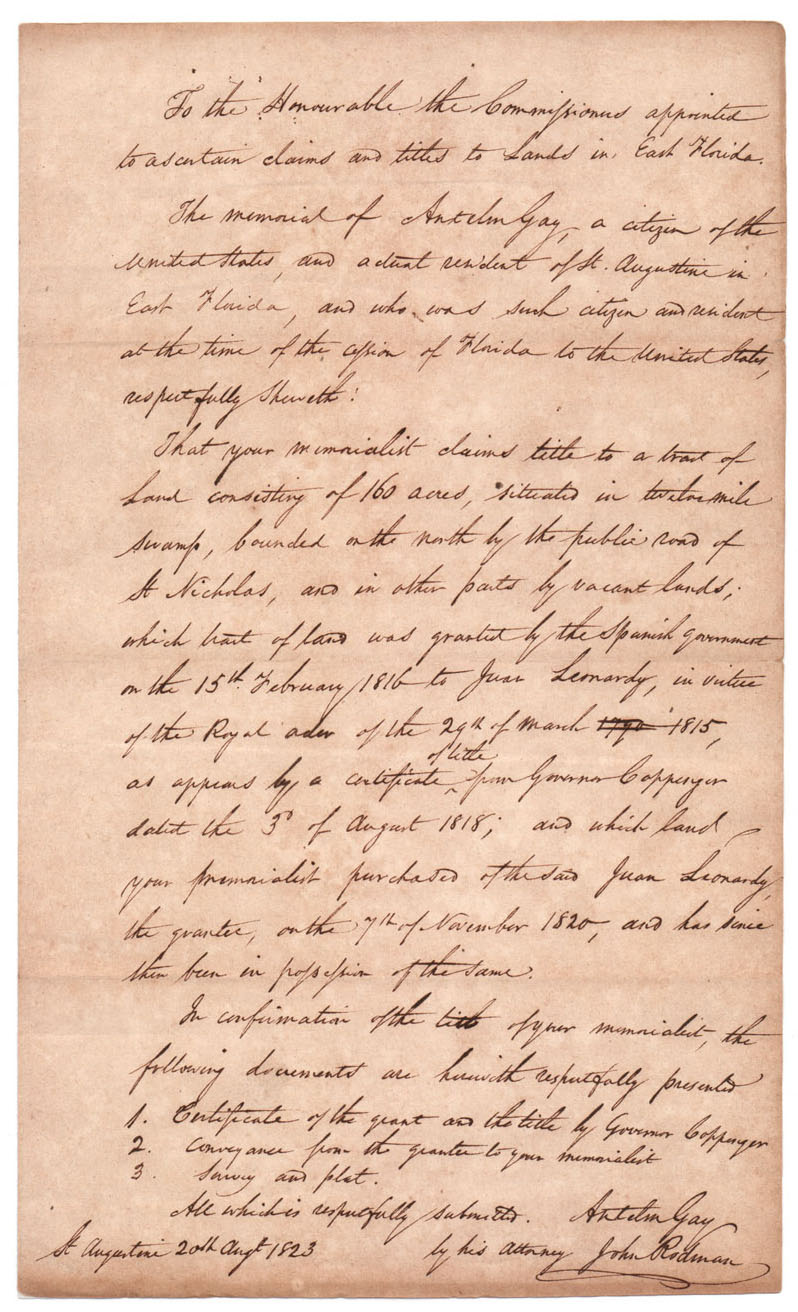 To the Honourable the Commissioners appointed
to ascertain claims and titles to Lands in East Florida.
The memorial of Antelm Gay, a citizen of the
United States, and actual resident of St. Augustine in
East Florida, and who was such citizen and resident
at the time of the cession of Florida to the United States,
respectfully sheweth:
That your memorialist claims title to a tract of
Land consisting of 160 acres, situated in twelve mile
swamp, bounded on the north by the public road of
St Nicholas, and in other parts by vacant lands;
which tract of land was granted by the Spanish government
on the 15th February 1816 to Juan Leonardy, in virtue
of the Royal order of the 29th of March 1790 1815,
of title
as appears by a certificate ^ from Governor Coppenger
dated the 3d of August 1818; and which land
your memorialist purchased of the said Juan Leonardy,
the grantee, on the 7th of November 1820, and has since
then been in possession of the same.
In confirmation of the title of your memorialist, the
following documents are herewith respectfully presented
1. Certificate of the grant and the title by Governor Coppenger
2. Conveyance from the grantee to your memorialist
3. Survey and plat.
All which is respectfully submitted. Antelm Gay
St Augustine 20th Augt 1823 by his attorney John Rodman